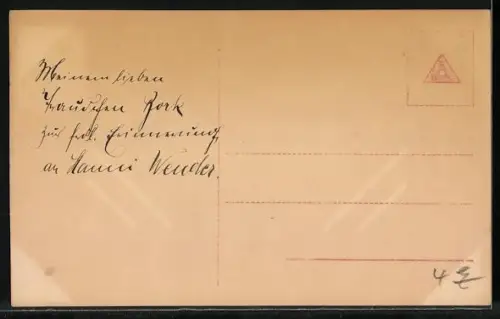 Meinem lieben
Frauchen York
zur frdl. Erinnerung
an Hanni Wender.
4